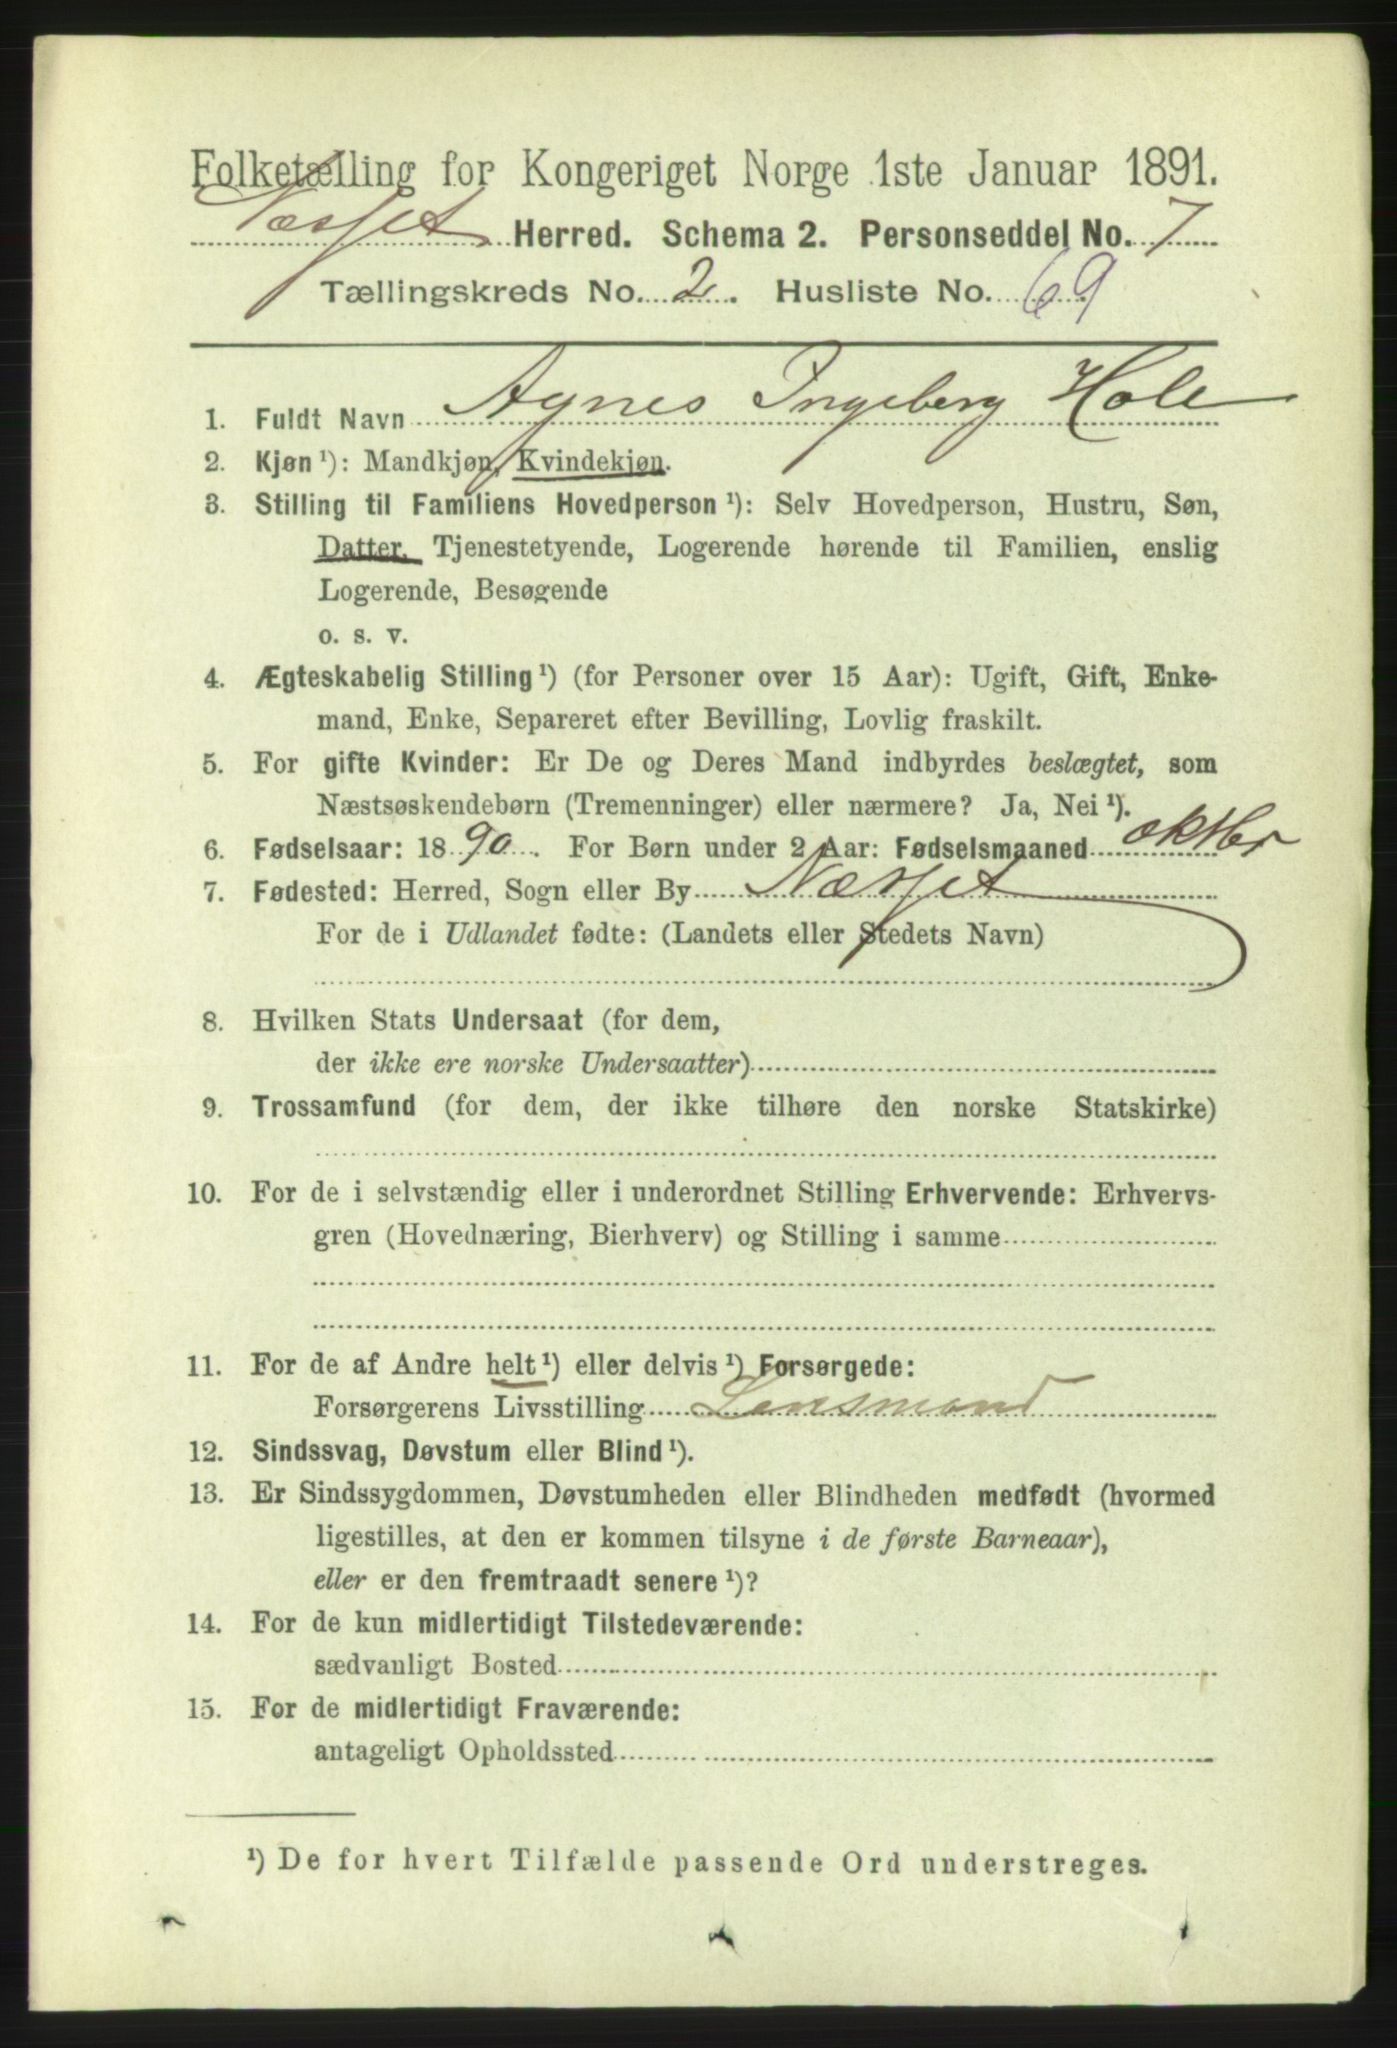 Folketælling for Kongeriget Norge 1ste Januar 1891.
Næsset Herred. Schema 2. Personseddel No. 7
Tællingskreds No. 2. Husliste No. 69
1. Fuldt Navn Agnes Ingeberg Hole
2. Kjøn ¹): Mandkjøn, Kvindekjøn.
3. Stilling til Familiens Hovedperson ¹): Selv Hovedperson, Hustru, Søn,
Datter, Tjenestetyende, Logerende hørende til Familien, enslig
Logerende, Besøgende
o. s. v.
4. Ægteskabelig Stilling ¹) (for Personer over 15 Aar): Ugift, Gift, Enke-
mand, Enke, Separeret efter Bevilling, Lovlig fraskilt.
5. For gifte Kvinder: Er De og Deres Mand indbyrdes beslægtet, som
Næstsøskendebørn (Tremenninger) eller nærmere? Ja, Nei ¹).
6. Fødselsaar: 1890. For Børn under 2 Aar: Fødselsmaaned oktbr
7. Fødested: Herred, Sogn eller By Næsset
For de i Udlandet fødte: (Landets eller Stedets Navn)
8. Hvilken Stats Undersaat (for dem,
der ikke ere norske Undersaatter)
9. Trossamfund (for dem, der ikke tilhøre den norske Statskirke)
10. For de i selvstændig eller i underordnet Stilling Erhvervende: Erhvervs-
gren (Hovednæring, Bierhverv) og Stilling i samme
11. For de af Andre helt ¹) eller delvis ¹) Forsørgede:
Forsørgerens Livsstilling Lensmand
12. Sindssvag, Døvstum eller Blind ¹).
13. Er Sindssygdommen, Døvstumheden eller Blindheden medfødt (hvormed
ligestilles, at den er kommen tilsyne i de første Barneaar),
eller er den fremtraadt senere ¹)?
14. For de kun midlertidigt Tilstedeværende:
sædvanligt Bosted
15. For de midlertidigt Fraværende:
antageligt Opholdssted
¹) De for hvert Tilfælde passende Ord understreges.